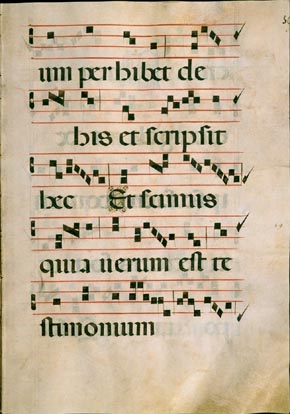 um perhibet de
his et scripsit
hec Et scimus
quia uerum est te
stimonium